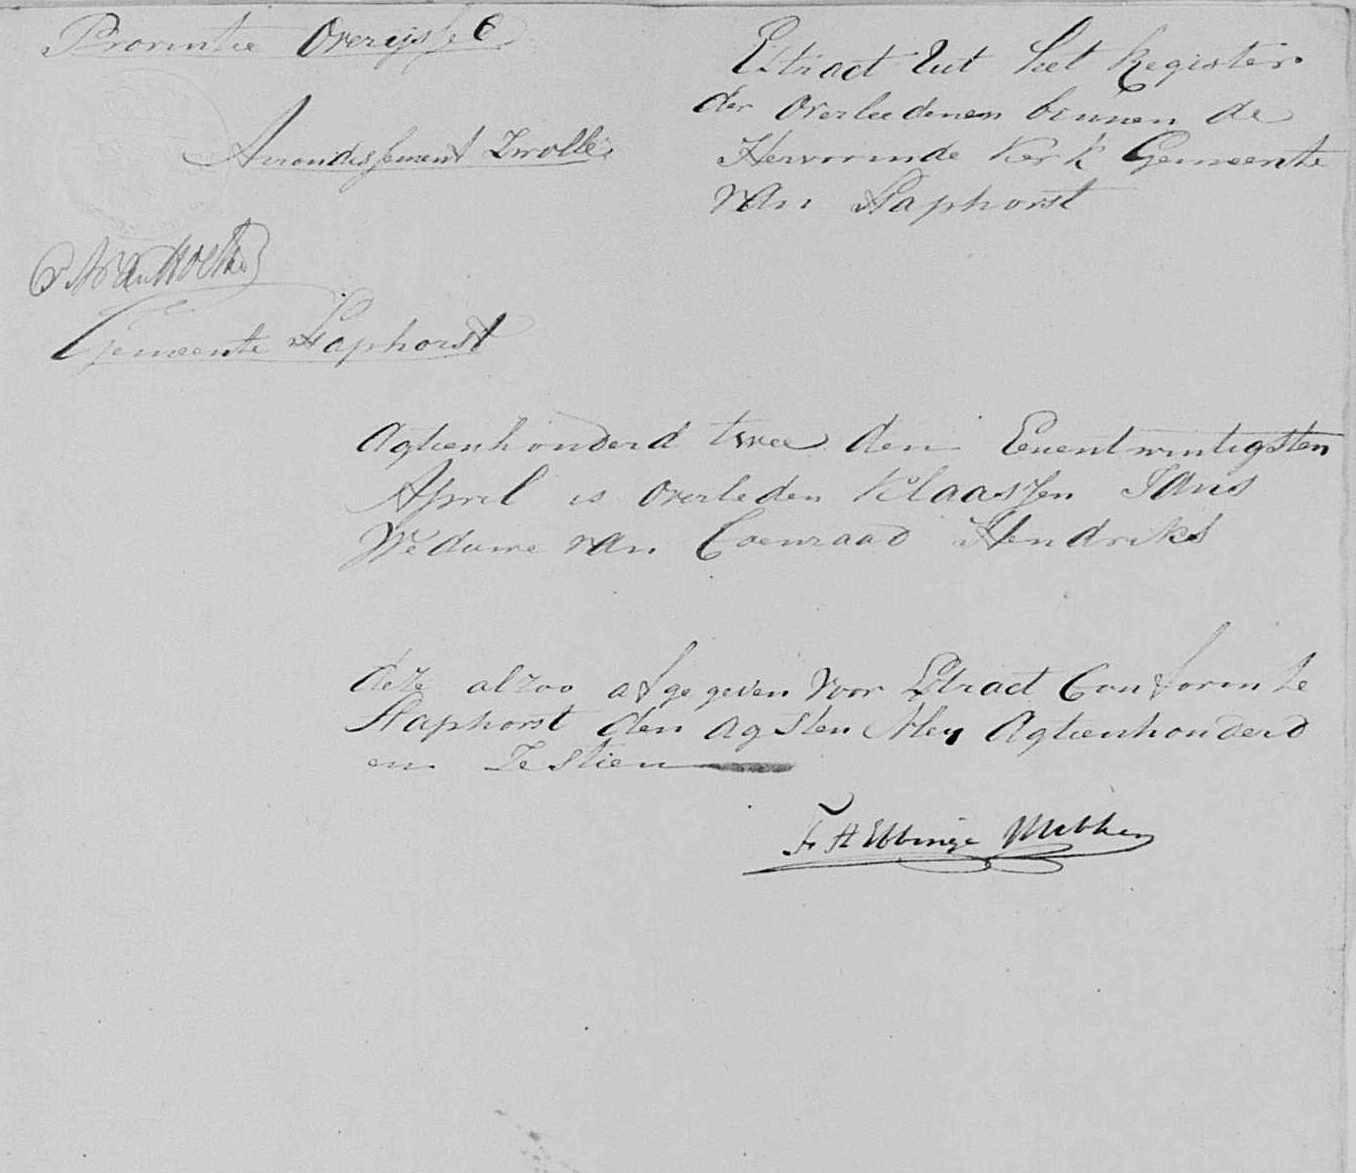 Provintie Overijssel
Arrondissement Zwolle
Gemeente Staphorst
Extract Uut het Register
der Overleedenen binnen de
Hervormde Kerk Gemeente
van Staphorst
Agtienhonderd twee den Eenentwintigsten
April is overleden Klaasjen Jans
Weduwe van Coenraad Hendriks
deze alzoo afgegeven voor Extract Conform te
Staphorst den agsten Mey Agtienhonderd
en Zestien
F. H Ebbinge